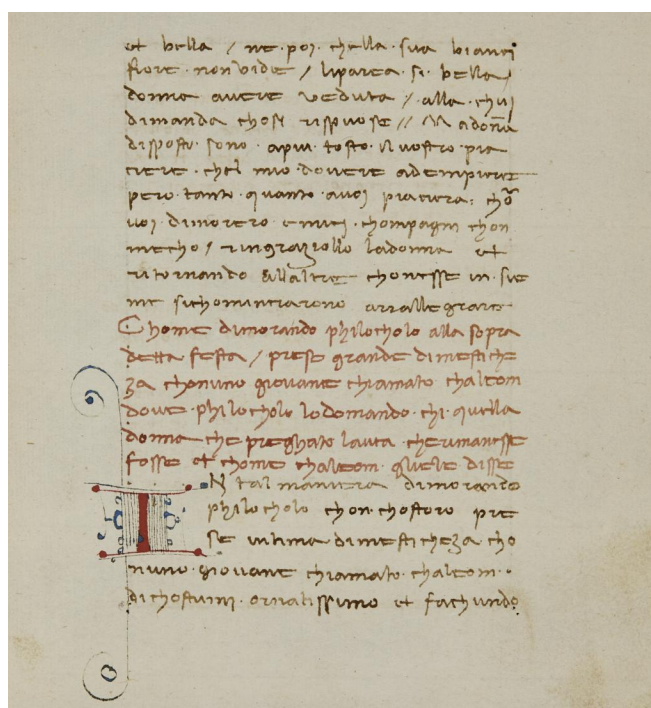 et bella / ne poi chella sua bianci
fiore non vide / li parea si bella /
donna avere veduta / alla chui
dimanda chosi rispuose // Madoña
disposto sono apiu tosto il vostro pia
ciere chel mio dovere adempiere
pero tanto quanto avoi piacera chõ
voi dimorero emiei chompagni chon
mecho / ringraziollo ladonna et
ritornando allaltre chonesse in sie
me sichominciarono arrallegrare
Chome dimorando philocholo alla sopra
detta festa / prese grande dimestiche
za chonuno giovane chiamato chaleom
dove philocholo lo domando chi quella
donna che preghato lavea che rimanesse
fosse et chome chaleom gliele disse
IN tal maniera dimorando
philocholo chon chostoro pre
se intima dimestichezа cho
nuno giovane chiamato chaleom
di chostumi ornatissimo et fachundo